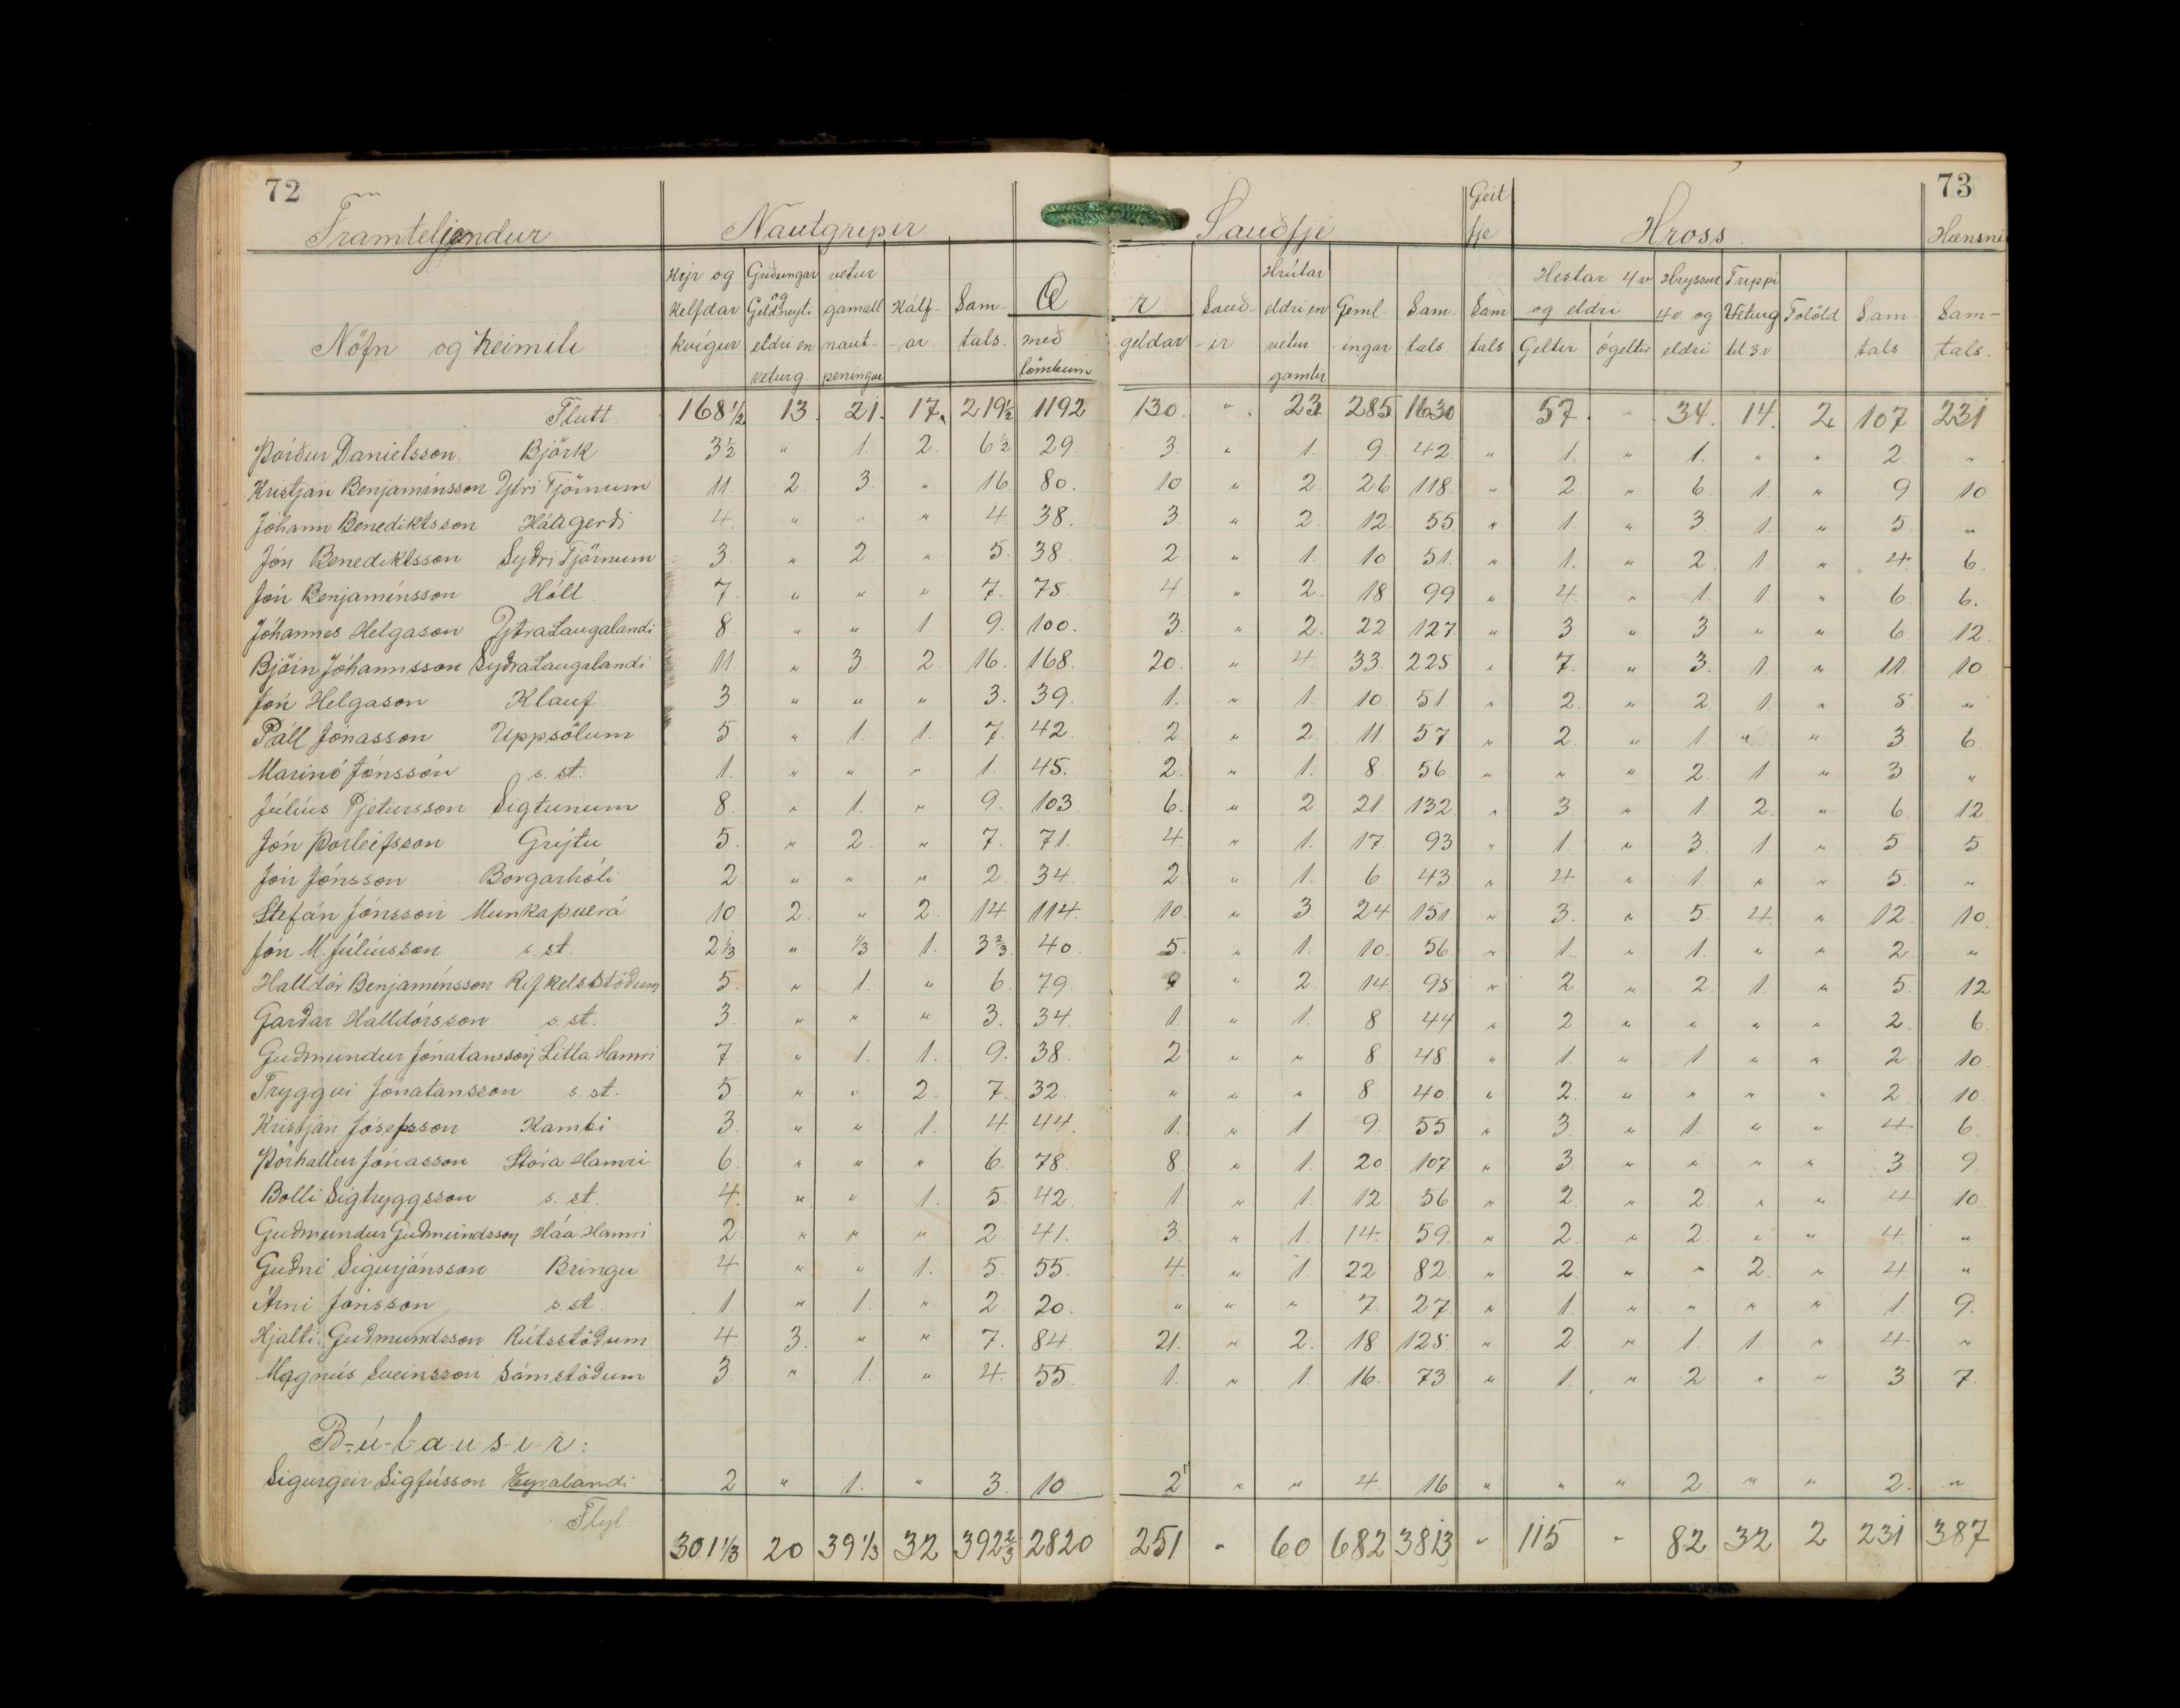 72
73
Framteljendur Nautgripir Sauðfje Geit fje Hross. Hænsni
Nöfn og heimili
Kýr og kelfdar kvígur
Griðungar og Geldneyti eldri en veturg.
vetur gamall naut- peningur
Kálf- ar.
Sam- tals.
Æ r
með lömbum
geldar
Sauð- ir
Hrútar eldri en vetur gamlir
Geml- ingar
Sam- tals
Sam tals
Hestar 4 v og eldri
Geltir
ógeltir
Hryssur 4 v. og eldri
Trippi Veturg til 3 v.
Folöld
Sam- tals
Sam- tals.
Flutt 168 1/2 13. 21. 17. 219 1/2 1192 130. " 23 285 1630 57. " 34. 14. 2 107 231
Þórður Daníelsson Björk 3 1/2 " 1. 2. 6 1/2 29. 3. " 1. 9. 42. " 1. " 1. " " 2. "
Kristján Benjamínsson Ytri Tjörnum 11. 2. 3. " 16 80. 10 " 2. 26 118. " 2. " 6 1. " 9 10.
Jóhann Benediktsson Háagerði 4. " " " 4 38. 3. " 2. 12. 55 " 1. " 3 1. " 5. "
Jón Benediktsson Syðri Tjörnum 3. " 2 " 5. 38 2. " 1. 10 51. " 1. " 2. 1. " 4. 6.
Jón Benjamínsson Hóll 7. " " " 7. 75. 4. " 2. 18 99 " 4. " 1. 1. " 6. 6.
Jóhannes Helgason Ytra Laugalandi 8 " " 1. 9. 100. 3. " 2. 22 127. " 3 " 3 " " 6. 12.
Björn Jóhannsson Syðra Laugalandi 11. " 3. 2. 16. 168. 20. " 4. 33. 225. " 7. " 3. 1. " 11. 10.
Jón Helgason Klauf. 3. " " " 3. 39. 1. " 1. 10. 51. " 2. " 2. 1. " 5 "
Páll Jónasson Uppsölum 5. " 1. 1. 7. 42. 2 " 2. 11 57. " 2. " 1 " " 3. 6.
Marinó Jónsson s. st. 1. " " " 1. 45. 2. " 1. 8. 56 " " " 2. 1. " 3 "
Júlíus Pjetursson Sigtunum 8. " 1. " 9. 103 6. " 2 21 132. " 3. " 1 2. " 6. 12.
Jón Þorleifsson Grýtu 5. " 2. " 7. 71. 4. " 1. 17. 93 " 1. " 3. 1. " 5. 5
Jón Jónsson Borgarhóli 2 " " " 2. 34. 2. " 1. 6 43 " 4 " 1 " " 5. "
Stefán Jónsson Munkaþverá 10. 2. " 2. 14. 114. 10. " 3 24. 151. " 3. " 5. 4. " 12. 10.
Jón M. Júlíusson s. st. 2 1/3 " 1/3 1. 3 2/3 40. 5. " 1. 10. 56 " 1. " 1. " " 2. "
Halldór Benjamínsson Rifkelsstöðum 5. " 1. " 6. 79. " 2. 14. 95 " 2. " 2. 1. " 5. 12
Garðar Halldórsson s. st. 3. " " " 3. 34. 1. " 1. 8 44 " 2 " " " " 2. 6.
Guðmundur Jónatansson Litla Hamri 7. " 1. 1. 9. 38. 2 " " 8 48 " 1. " 1 " " 2 10.
Tryggvi Jónatansson s. st. 5 " " 2. 7. 32. " " " 8. 40. " 2. " " " " 2. 10.
Kristján Jósepsson Kambi 3. " " 1. 4. 44. 1. " 1 9. 55 " 3. " 1. " " 4 6.
Þórhallur Jónasson Stóra Hamri 6. " " " 6. 78. 8. " 1. 20. 107 " 3. " " " " 3. 9.
Bolli Sigtryggsson s. st. 4. " " 1. 5. 42. 1. " 1 12. 56 " 2. " 2. " " 4 10.
Guðmundur Guðmundsson Háa Hamri 2. " " " 2. 41. 3. " 1. 14. 59. " 2. " 2. " " 4. "
Guðni Sigurjónsson Bringu 4. " " 1. 5. 55. 4. " 1 22 82. " 2. " " 2. " 4. "
Árni Jónsson s. st. 1. " 1. " 2. 20. " " " 7. 27. " 1. " " " " 1 9.
Hjalti Guðmundsson Rútsstöðum 4. 3. " " 7. 84 21. " 2. 18 125. " 2. " 1. 1. " 4. "
Magnús Sveinsson Sámstöðum 3. " 1. " 4. 55. 1. " 1. 16. 73. " 1. " 2. " " 3. 7.
B-ú-l-a-u-s-i-r:
Sigurgeir Sigfússon Eyralandi 2 " 1. " 3. 10 2 " " 4. 16 " " " 2. " " 2. "
Flyt 301 1/3 20 39 1/3 32 392 2/3 2820 251 " 60 682 3813 " 115 " 82 32 2 231 387